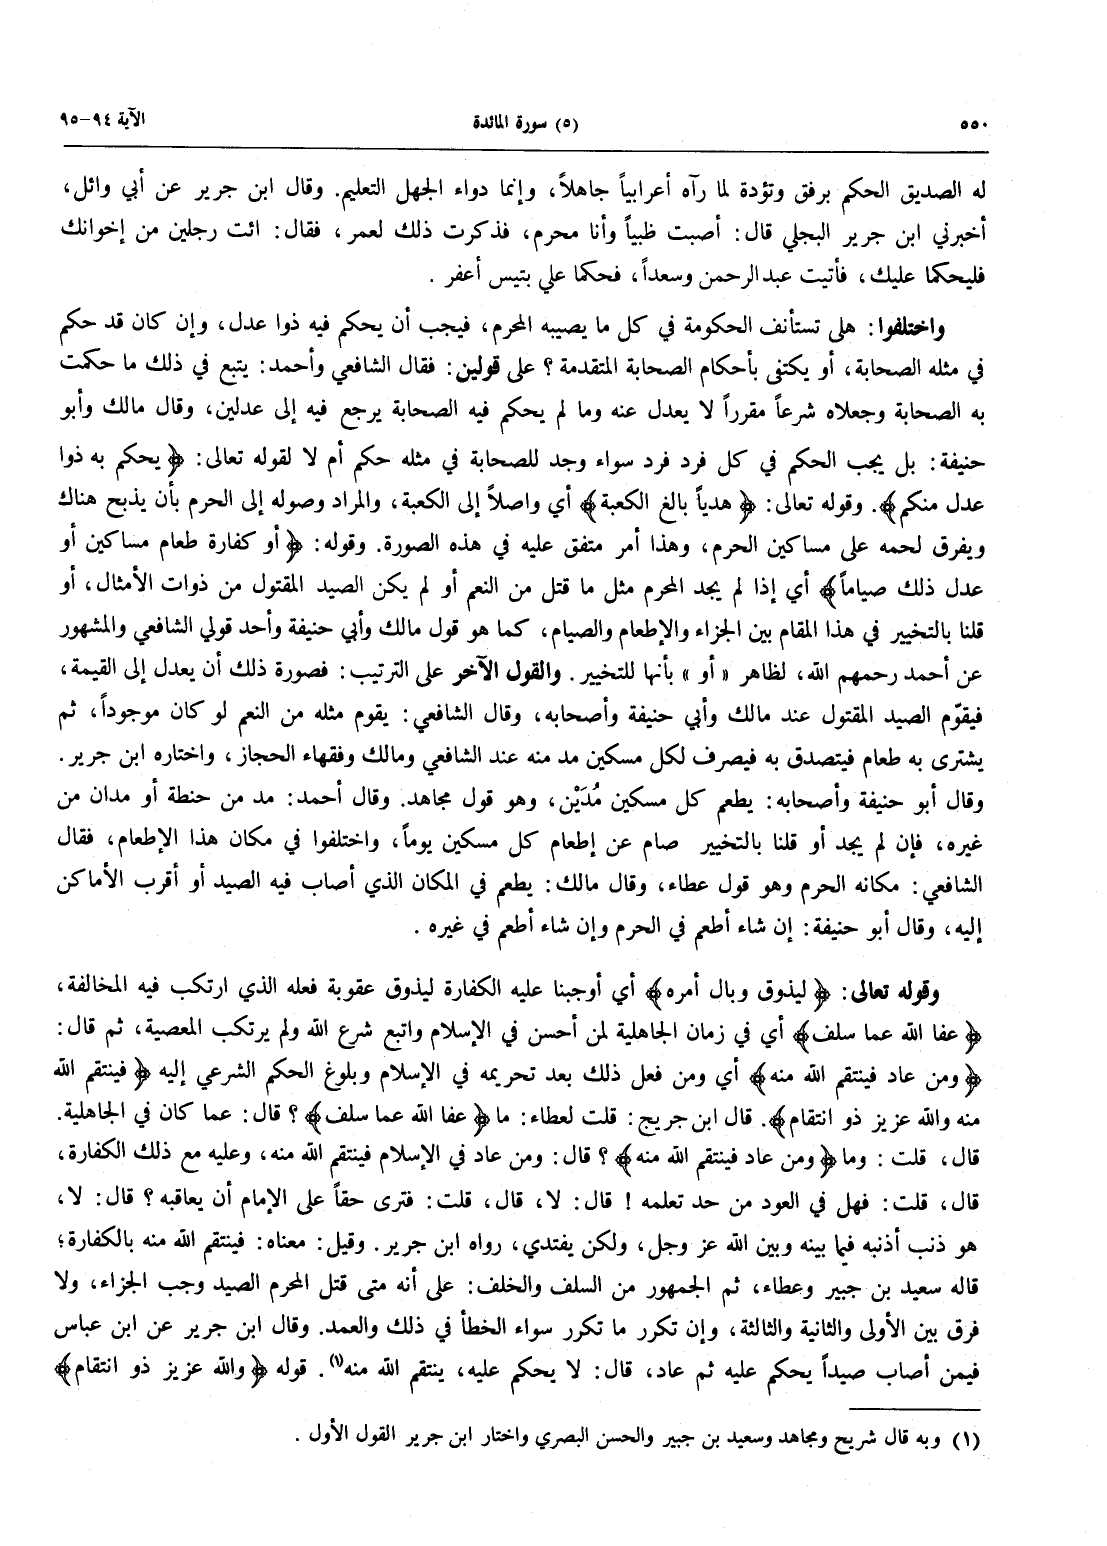 ٥٥٠
(٥) سورة المائدة
الآية ٩٤-٩٥
له الصديق الحكم برفق وتؤدة لما رآه أعرابياً جاهلاً، وإنما دواء الجهل التعليم. وقال ابن جرير عن أبي وائل،
أخبرني ابن جرير البجلي قال: أصبت ظبياً وأنا محرم، فذكرت ذلك لعمر، فقال: ائت رجلين من إخوانك
فليحكما عليك، فأتيت عبدالرحمن وسعداً، فحكما علي بتيس أعفر .
واختلفوا: هل تستأنف الحكومة في كل ما يصيبه المحرم، فيجب أن يحكم فيه ذوا عدل، وإن كان قد حكم
في مثله الصحابة، أو يكتفى بأحكام الصحابة المتقدمة ؟ على قولين: فقال الشافعي وأحمد: يتبع في ذلك ما حكمت
به الصحابة وجعلاه شرعاً مقرراً لا يعدل عنه وما لم يحكم فيه الصحابة يرجع فيه إلى عدلين، وقال مالك وأبو
حنيفة: بل يجب الحكم في كل فرد فرد سواء وجد للصحابة في مثله حكم أم لا لقوله تعالى: ﴿ يحكم به ذوا
عدل منكم﴾. وقوله تعالى: ﴿ هدياً بالغ الكعبة﴾ أي واصلاً إلى الكعبة، والمراد وصوله إلى الحرم بأن يذبح هناك
ويفرق لحمه على مساكين الحرم، وهذا أمر متفق عليه في هذه الصورة. وقوله: ﴿ أو كفارة طعام مساكين أو
عدل ذلك صياماً﴾ أي إذا لم يجد المحرم مثل ما قتل من النعم أو لم يكن الصيد المقتول من ذوات الأمثال، أو
قلنا بالتخيير في هذا المقام بين الجزاء والإطعام والصيام، كما هو قول مالك وأبي حنيفة وأحد قولي الشافعي والمشهور
عن أحمد رحمهم الله، لظاهر « أو » بأنها للتخيير. والقول الآخر على الترتيب: فصورة ذلك أن يعدل إلى القيمة،
فيقوّم الصيد المقتول عند مالك وأبي حنيفة وأصحابه، وقال الشافعي: يقوم مثله من النعم لو كان موجوداً، ثم
يشترى به طعام فيتصدق به فيصرف لكل مسكين مد منه عند الشافعي ومالك وفقهاء الحجاز، واختاره ابن جرير.
وقال أبو حنيفة وأصحابه: يطعم كل مسكين مُدَيْن، وهو قول مجاهد. وقال أحمد: مد من حنطة أو مدان من
غيره، فإن لم يجد أو قلنا بالتخيير صام عن إطعام كل مسكين يوماً، واختلفوا في مكان هذا الإطعام، فقال
الشافعي: مكانه الحرم وهو قول عطاء، وقال مالك: يطعم في المكان الذي أصاب فيه الصيد أو أقرب الأماكن
إليه، وقال أبو حنيفة: إن شاء أطعم في الحرم وإن شاء أطعم في غيره .
وقوله تعالى: ﴿ ليذوق وبال أمره﴾ أي أوجبنا عليه الكفارة ليذوق عقوبة فعله الذي ارتكب فيه المخالفة،
﴿ عفا الله عما سلف﴾ أي في زمان الجاهلية لمن أحسن في الإسلام واتبع شرع الله ولم يرتكب المعصية، ثم قال:
﴿ ومن عاد فينتقم الله منه﴾ أي ومن فعل ذلك بعد تحريمه في الإسلام وبلوغ الحكم الشرعي إليه ﴿ فينتقم الله
منه والله عزيز ذو انتقام﴾. قال ابن جريج: قلت لعطاء: ما﴿ عفا الله عما سلف﴾ ؟ قال: عما كان في الجاهلية.
قال، قلت : وما﴿ ومن عاد فينتقم الله منه﴾ ؟ قال: ومن عاد في الإسلام فينتقم الله منه، وعليه مع ذلك الكفارة،
قال، قلت: فهل في العود من حد تعلمه ! قال: لا، قال، قلت: فترى حقاً على الإمام أن يعاقبه ؟ قال: لا،
هو ذنب أذنبه فيما بينه وبين الله عز وجل، ولكن يفتدي، رواه ابن جرير. وقيل: معناه: فينتقم الله منه بالكفارة؛
قاله سعيد بن جبير وعطاء، ثم الجمهور من السلف والخلف: على أنه متى قتل المحرم الصيد وجب الجزاء، ولا
فرق بين الأولى والثانية والثالثة، وإن تكرر ما تكرر سواء الخطأ في ذلك والعمد. وقال ابن جرير عن ابن عباس
فيمن أصاب صيداً يحكم عليه ثم عاد، قال: لا يحكم عليه، ينتقم الله منه(١). قوله ﴿ والله عزيز ذو انتقام﴾
(١) وبه قال شريح ومجاهد وسعيد بن جبير والحسن البصري واختار ابن جرير القول الأول .